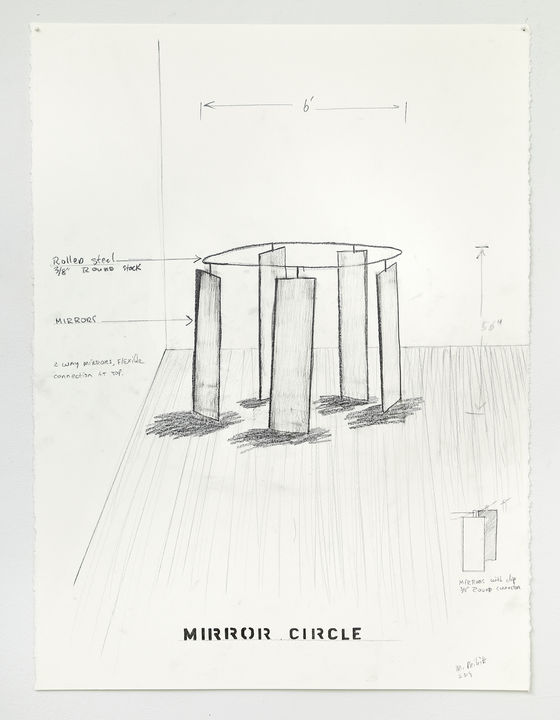 6'
Rolled steel
3/8" Round stock
MIRRORS
2 way mirrors, flexible
connection at top.
56"
Mirrors with clip
Round
MIRROR CIRCLE